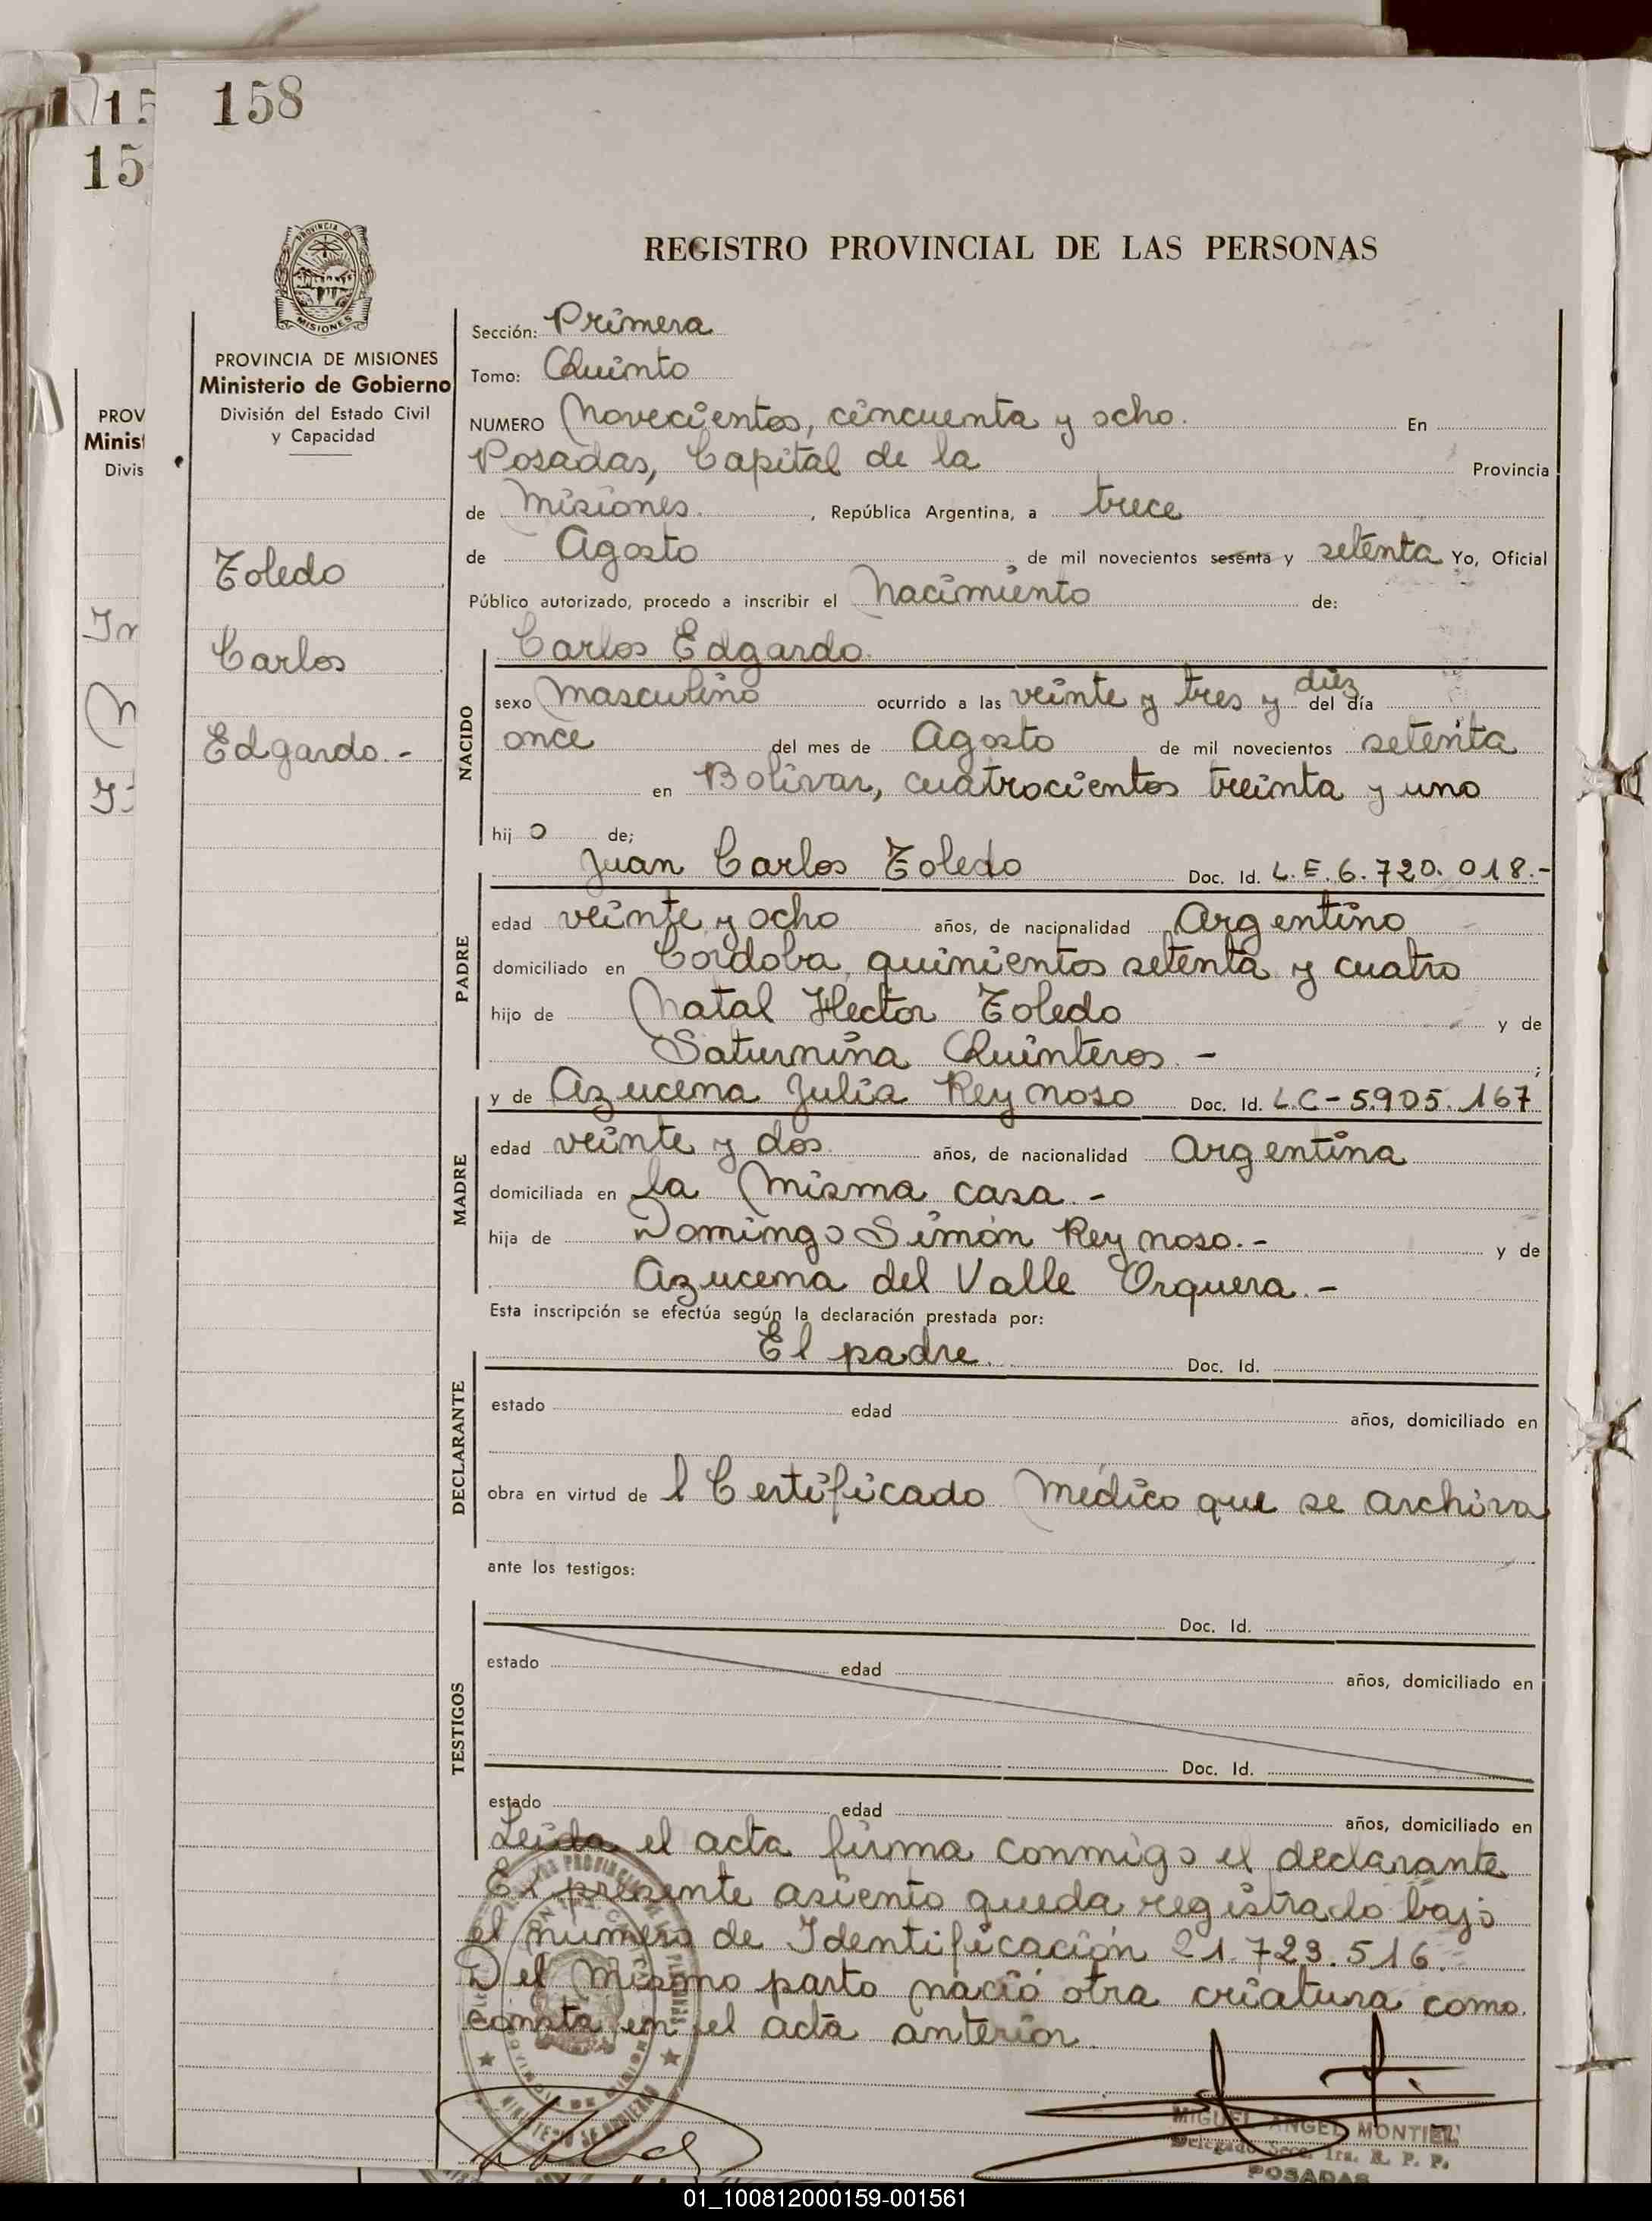 158
15
15
REGISTRO PROVINCIAL DE LAS PERSONAS
PROVINCIA DE MISIONES
Ministerio de Gobierno
División del Estado Civil
y Capacidad
PROV
Minist
Divis
Toledo
Carlos
Edgardo.-
Sección: Primera
Tomo: Quinto
NUMERO Novecientos, cincuenta y ocho. En
Posadas, Capital de la Provincia
de Misiones. , República Argentina, a trece
de Agosto de mil novecientos sesenta y setenta Yo, Oficial
Público autorizado, procedo a inscribir el Nacimiento de:
NACIDO
Carlos Edgardo.
sexo Masculino ocurrido a las veinte y tres y diez del día
once del mes de Agosto de mil novecientos setenta
en Bolivar, cuatrocientos treinta y uno
hij o de;
PADRE
Juan Carlos Toledo Doc. Id. L.E. 6.720.018.-
edad veinte y ocho años, de nacionalidad Argentino
domiciliado en Cordoba, quinientos setenta y cuatro
hijo de Natal Hector Toledo y de
Saturnina Quinteros.- ;
MADRE
y de Azucena Julia Reynoso Doc. Id. L.C-5.905.167
edad veinte y dos. años, de nacionalidad Argentina
domiciliada en la misma casa.-
hija de Domingo Simón Reynoso.- y de
Azucena del Valle Orquera.-
Esta inscripción se efectúa según la declaración prestada por:
DECLARANTE
El padre. Doc. Id.
estado edad años, domiciliado en
obra en virtud de l Certificado Médico que se archiva
ante los testigos:
TESTIGOS
Doc. Id.
estado edad años, domiciliado en
Doc. Id.
estado edad años, domiciliado en
Leida el acta firma conmigo el declarante
El presente asiento queda registrado bajo
el número de Identificación 21.723.516.-
Del mismo parto nació otra criatura como
consta en el acta anterior.
MIGUEL ANGEL MONTIEL
Delegado Secc. 1ra. R. P. P.
POSADAS
01_100812000159-001561